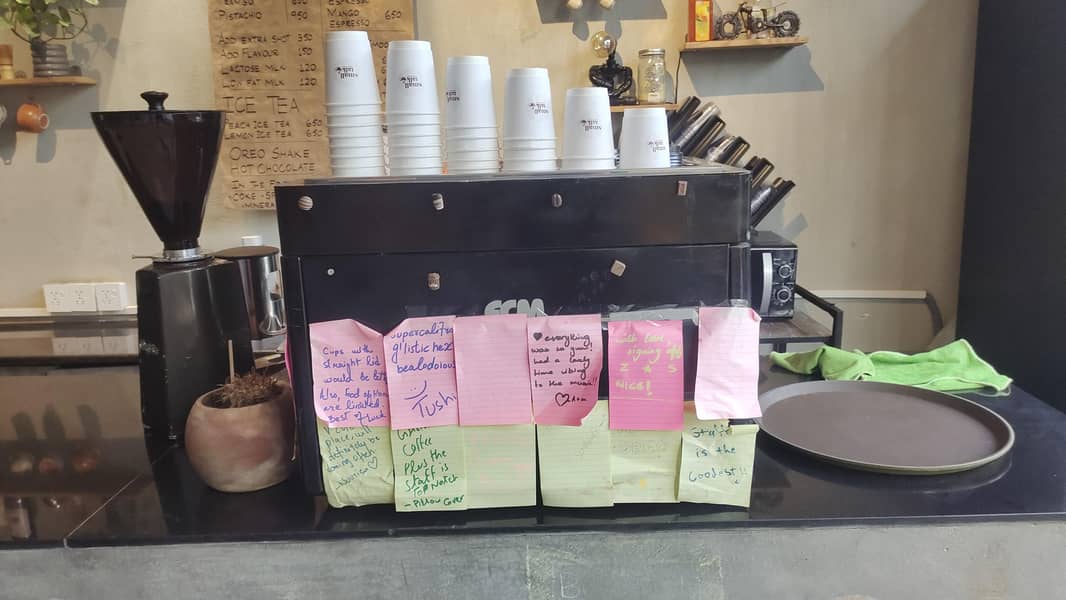 PISTACHIO 950
ADD EXTRA SHOT 350
ADD FLAVOUR 150
LACTOSE MILK 120
LOW FAT MILK 120
ICE TEA
PEACH ICE TEA 650
LEMON ICE TEA 650
OREO SHAKE
HOT CHOCOLATE
ESPRESSO
MANGO 650
ESPRESSO
ECM
Cups with
straight lid
would be
Also, food options
are limited.
Best of luck
place, will
definitely be
coming often
supercalifra
gilistichex
bealodious
Tushi
Coffee
Plus the
staff is
TOP NOTCH
- Pillow Cover
everything
was so good!
had a lovely
time vibing
to the music!!
signing off
Z & S
NICE!
Staff
is the
Coolest!!